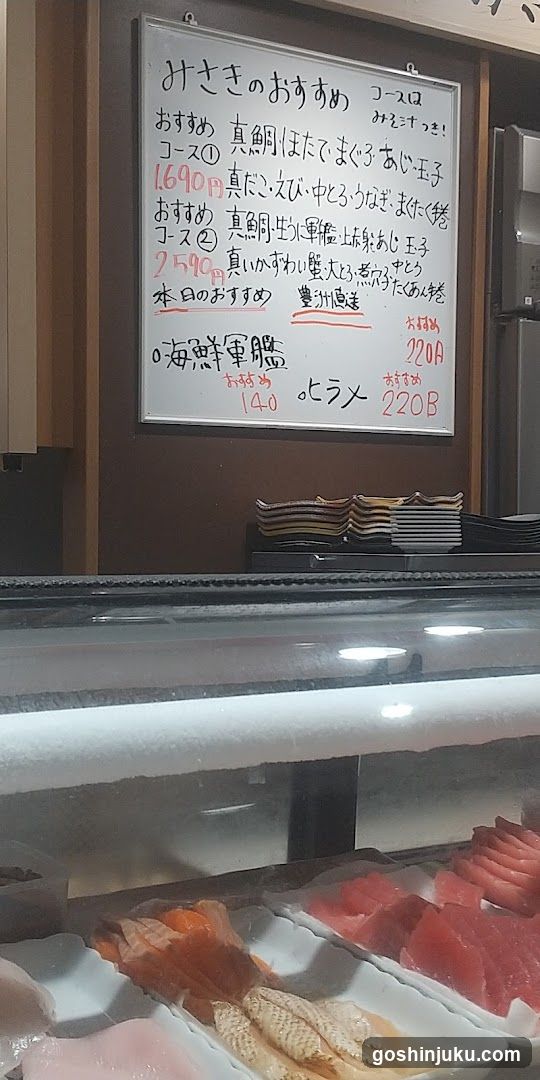 みさきのおすすめ
コースは
みそ汁つき!
おすすめ
コース① 真鯛・ほたて・まぐろ・あじ・玉子
1.690円 真だこ・えび・中とろ・うなぎ・まぐたく巻
おすすめ
コース② 真鯛・生うに軍艦・上赤身・あじ 玉子
2590円 真いか・ずわい蟹・大とろ・煮穴子 中とろ
たくあん巻
本日のおすすめ 豊洲直送
おすすめ
220A
○海鮮軍艦
おすすめ
140
○ヒラメ
おすすめ
220B
goshinjuku.com